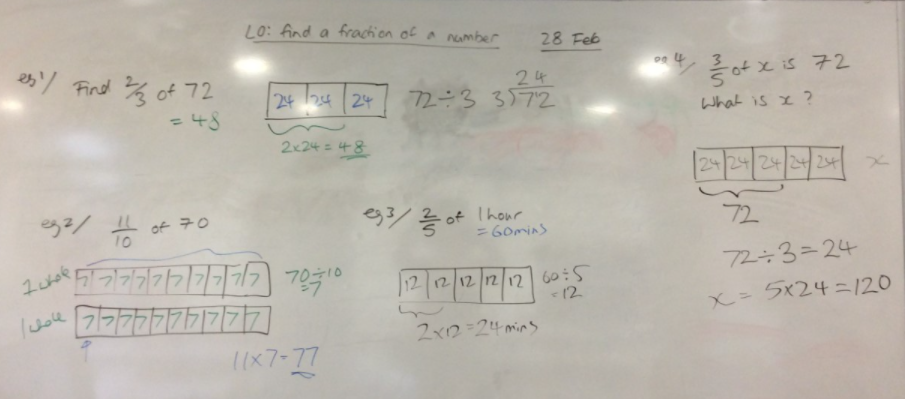 LO: find a fraction of a number 28 Feb
eg1/ Find 2/3 of 72
= 48
24 24 24
2x24 = 48
72÷3
24
3)72
eg2/ 11/10 of 70
1 whole 7 7 7 7 7 7 7 7 7 7
70÷10
=7
1 whole 7 7 7 7 7 7 7 7 7 7
11x7=77
eg3/ 2/5 of 1 hour
= 60mins
12 12 12 12 12
60÷5
=12
2x12=24mins
eg4/ 3/5 of x is 72
What is x?
24 24 24 24 24 x
72
72÷3=24
x = 5x24=120